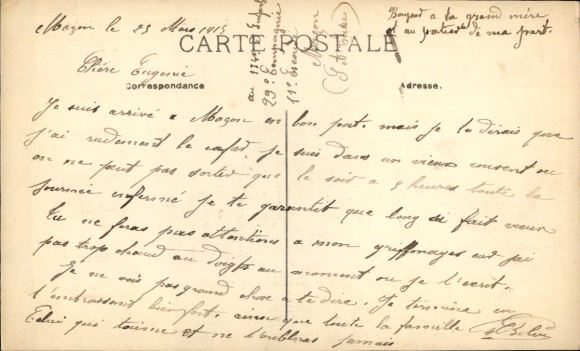 Maçon le 23 Mars 1915
Bonjour a ta grand mère
et au patie de ma part.
CARTE POSTALE
au 134me
29e Compagnie
11e Escouade
Maçon
Chère Eugenie
Correspondance
Adresse.
Je suis arrivé a Maçon en bon port. mais je te dirais que
j'ai rudement le cafar. Je suis dans un vieux couvent ou
on ne peut pas sortir que le soir a 5 heures toute la
journée enfermé je te garentit que long si fait vieux
Tu ne feras pas attentions a mon griffonages car j'ai
pas trop chaud au doigts au moment ou je t'ecrit.
Je ne vois pas grand chose a te dire. Je termine en
t'embrassant bien fort. ainsi que toute la famille
Celui qui t'aime et ne t'oublieras jamais